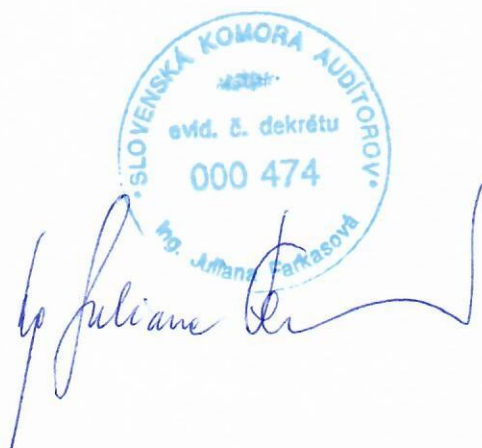 SLOVENSKÁ KOMORA AUDÍTOROV
evid. č. dekrétu
000 474
Ing. Juliana Farkasová
Juliana